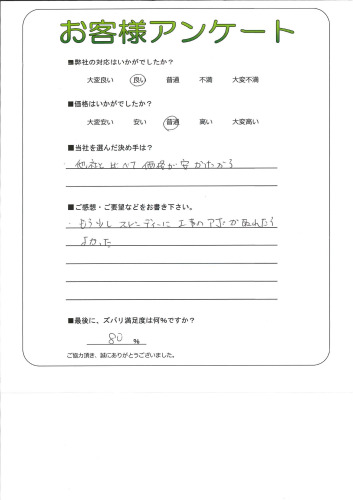 お客様アンケート
■弊社の対応はいかがでしたか?
大変良い 良い 普通 不満 大変不満
■価格はいかがでしたか?
大変安い 安い 普通 高い 大変高い
■当社を選んだ決め手は?
・他社と比べて価格が安かたから
■ご感想・ご要望などをお書き下さい。
・もう少しスピーディーに工事のアポがとれたら
よかった
■最後に、ズバリ満足度は何%ですか?
80 %
ご協力頂き、誠にありがとうございました。